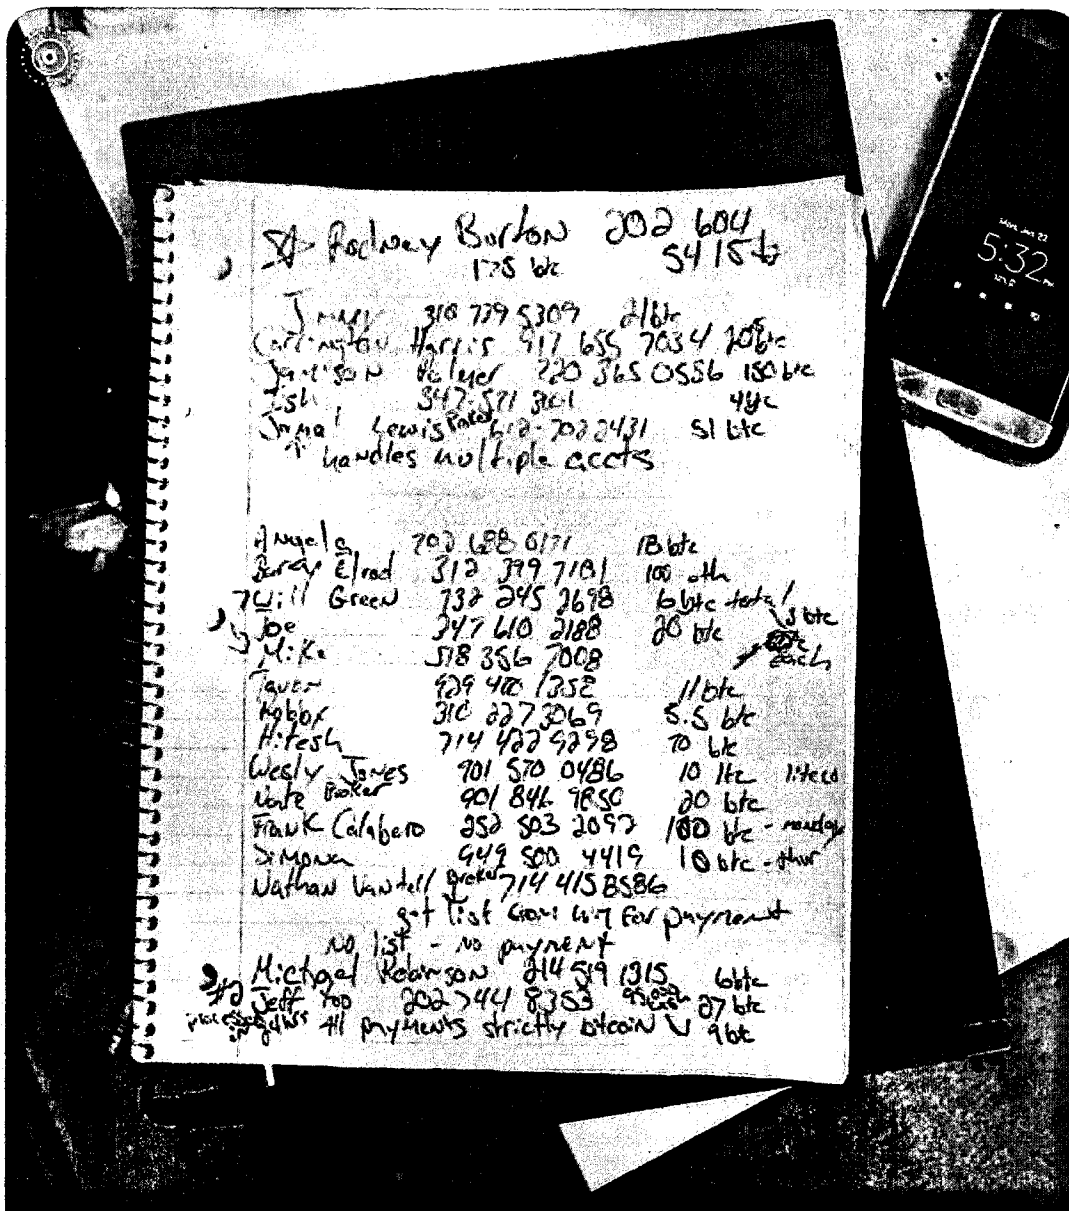 Rodney Burton 202 604
178 btc 5415
310 739 5309 21btc
Carrington Harris 917 655 7034
Jamison Palmer 720 365 0556 150 btc
Ish 347-571
Jamal Lewis 612-702 2431 51 btc
* handles multiple accts
Angela 702 688 0171 18 btc
Barry Elrod 312 399 7181 100 eth
Will Green 732 245 2698 6 btc total
3 btc
Joe 347 610 2188 20 btc
each
Mike 518 356 7008
929 400 1352 11 btc
310 227 3069 5.5 btc
Hitesh 714 422 9298 70 btc
Wesly Jones 901 570 0486 10 ltc
Nate Broker 901 846 9850 20 btc
Frank Calabero 252 503 2092 100 btc - monday
Simona 949 500 4419 10 btc - thur
Nathan Broker 714 415 8586
get list for payment
No list - no payment
Michael Robinson 214 519 1315 6btc
#2 Jeff 202 744 8353 27 btc
24hrs All payments strictly bitcoin 9 btc
5:32